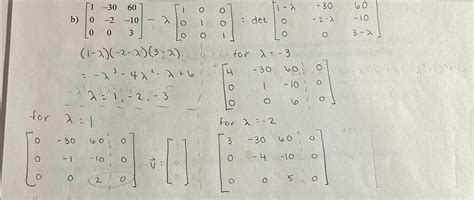 b) [1 -30 60; 0 -2 -10; 0 0 3] - λ [1 0 0; 0 1 0; 0 0 1] = det [1-λ -30 60; 0 -2-λ -10; 0 0 3-λ]
(1-λ)(-2-λ)(3-λ)
= -λ³ - 4λ² - λ + 6
λ = 1, -2, -3
for λ = -3
[4 -30 60 0; 0 1 -10 0; 0 0 6 0]
for λ = 1
[0 -30 60 0; 0 -1 -10 0; 0 0 2 0] v⃗ =
for λ = -2
[3 -30 60 0; 0 -4 -10 0; 0 0 5 0]